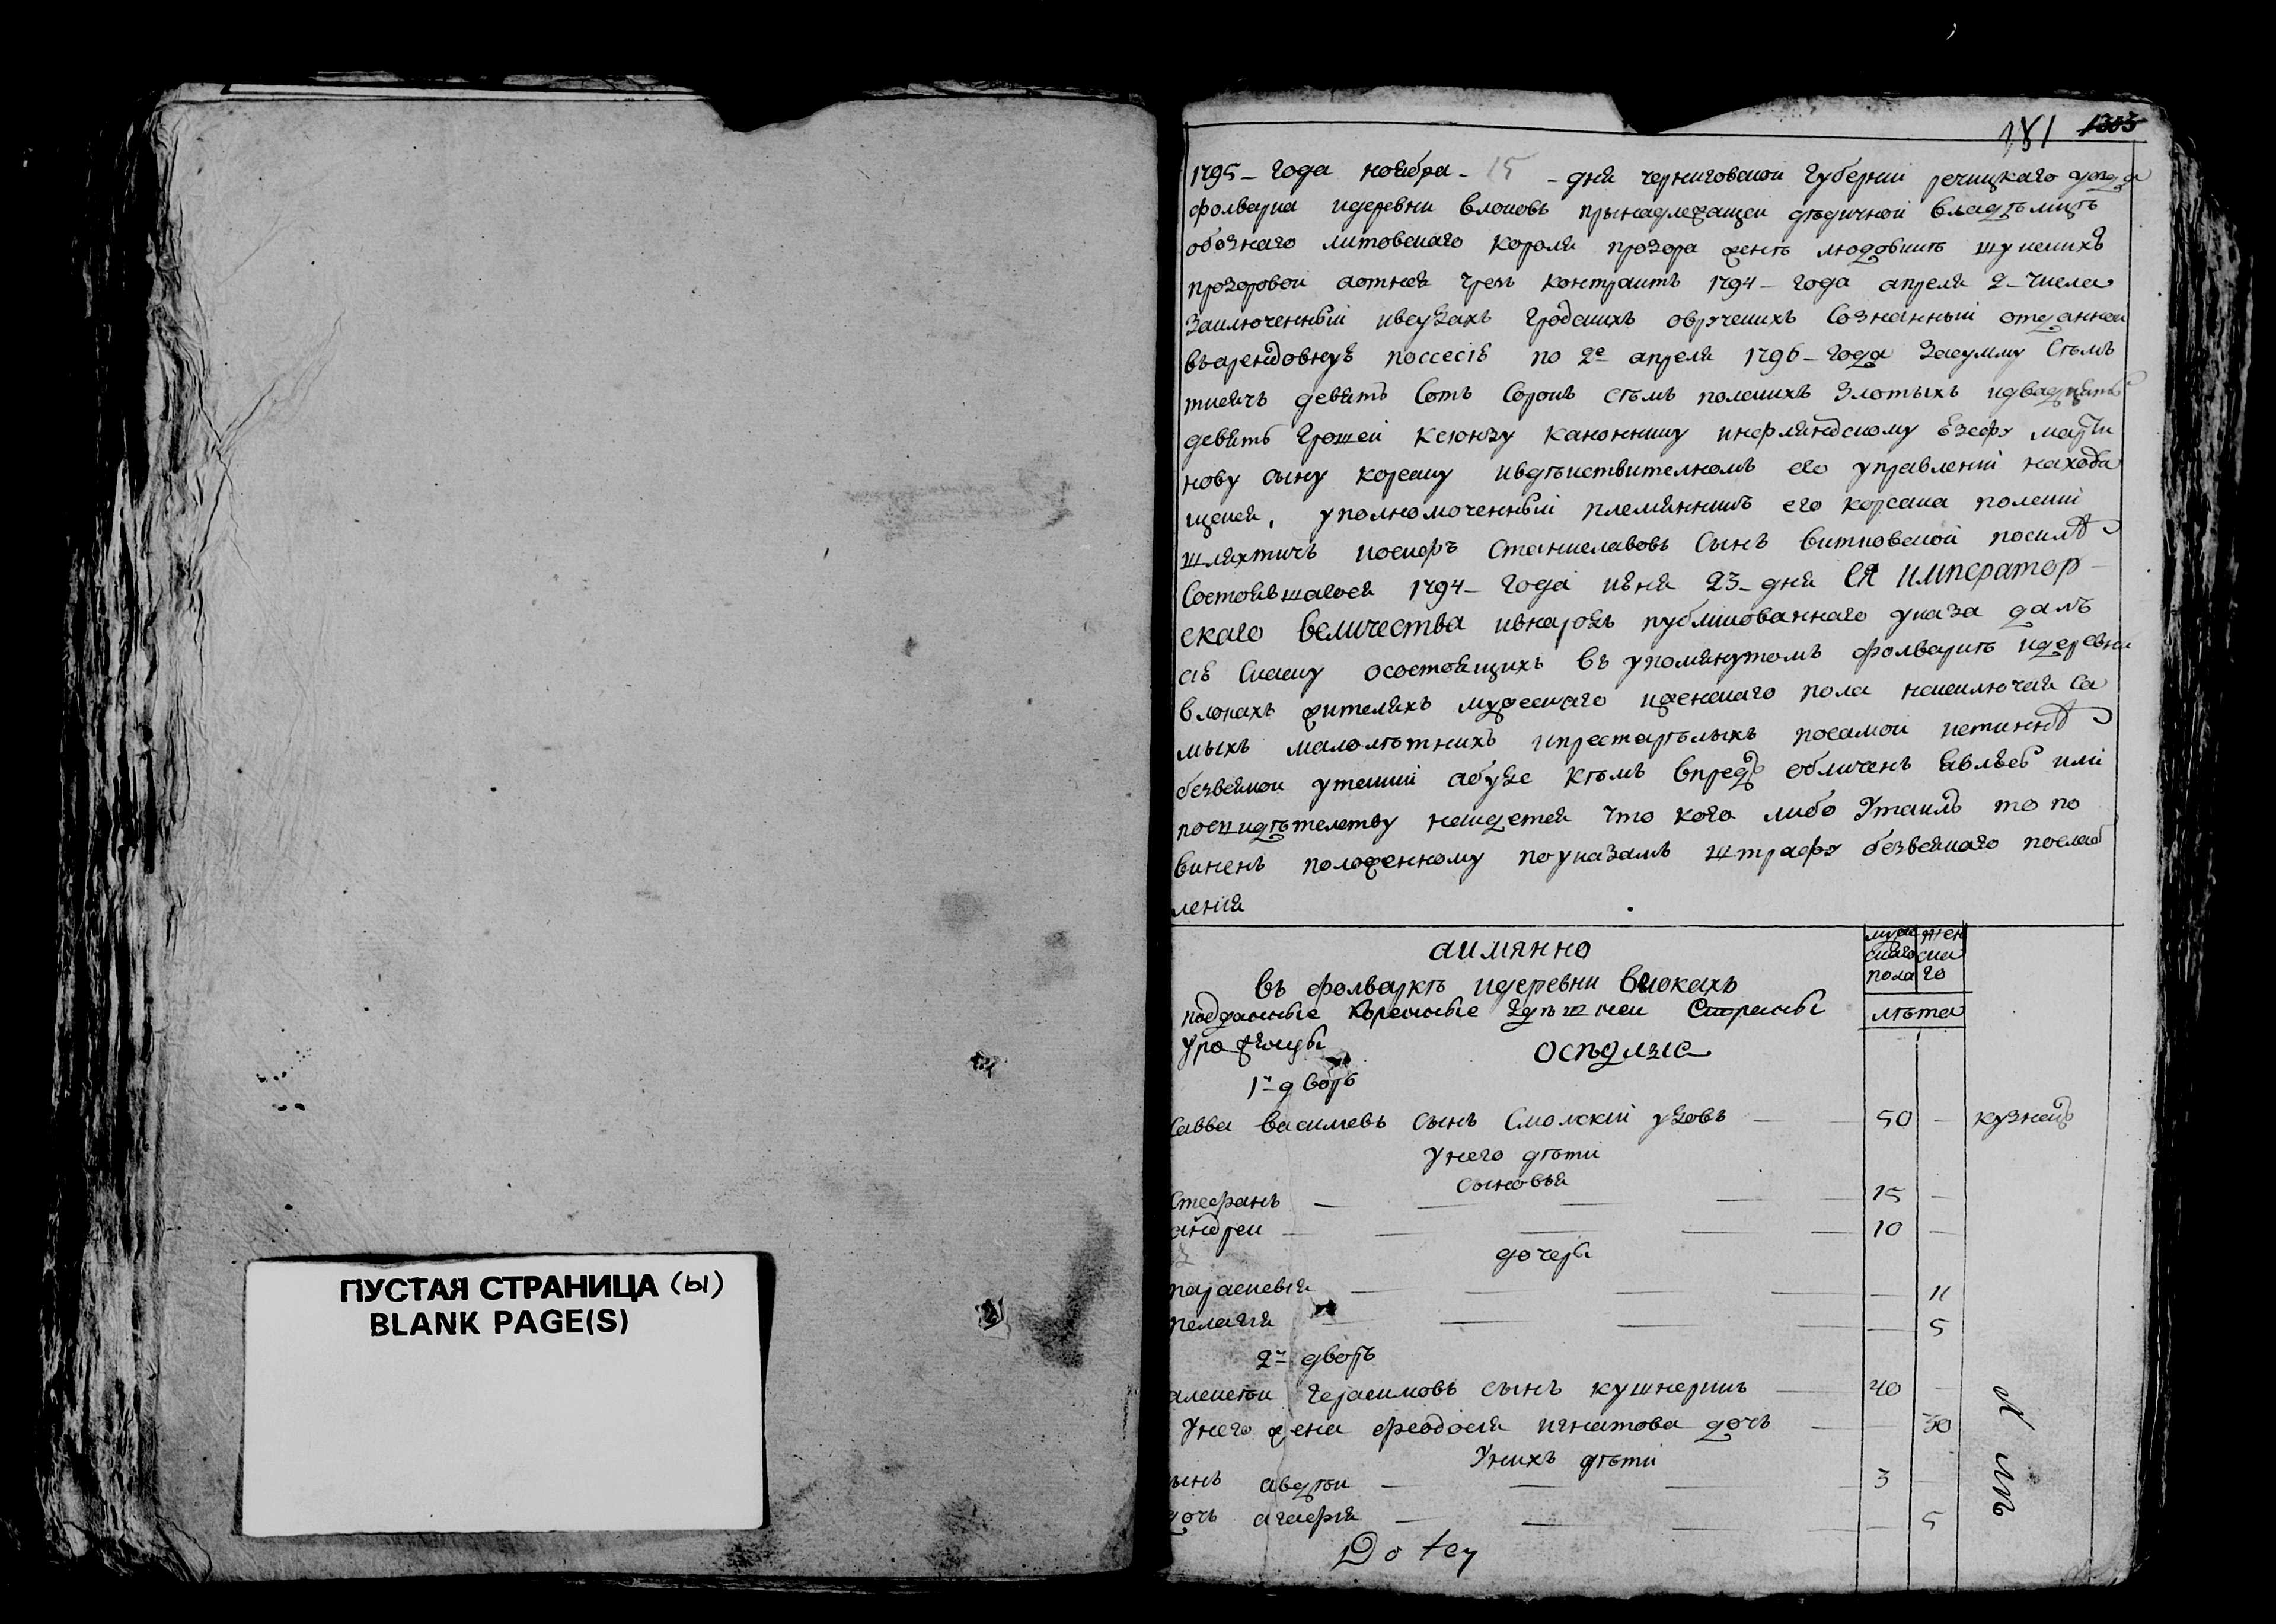 ПУСТАЯ СТРАНИЦА (ы)
BLANK PAGE(S)
181 1303
1795 - года ноября - 15 - дня черниговской губернїи речицкаго уезда
фолварка идеревни влоковъ прынадлежащеи дѣдичной владѣлицѣ
обознаго литовскаго короля прозора женѣ людовикѣ
прозоровой чрезъ контрактъ 1794 - года апреля 2 - числа
заключенный ивкзахъ гродскихъ овручскихъ сознанный отданной
въарендовную поссесїю по 2е апреля 1796 - года засумму сѣмъ
тисячъ девять сотъ сорокъ сѣмъ полскихъ злотыхъ идвадцять
девять грошей ксіонзу каноннику инфляндскому марти
нову сыну корсаку ивдѣиствителномъ его управленїи находя
щеися, уполномоченный племянникъ его корсака полский
шляхтичъ иосифъ станиславовъ сынъ витковской посилѣ
состоявшагося 1794 - года июня 23 - дня ЕЯ император
скаго величества ивнародъ публикованнаго указа далъ
сїю скаску осостоящихъ въ упомянутомъ фолваркѣ идеревни
влокахъ жителяхъ мужескаго иженскаго пола неисключая са
мыхъ малолѣтнихъ ипрестарѣлыхъ посамои истиннѣ
безвсякои утайки абуде кѣмъ впредь обличенъ явлюсь или
посвидѣтелству наидется что кого либо утаилъ то по
виненъ положенному поуказамъ штрафу безвсякаго послаб
ленїя
аимянно
муже скаго пола
жен ска го
въ фолваркѣ идеревни влокахъ
подданные коренные здѣшнеи стороны
лѣта
уроженцы
оспдлые
1й дворъ
савва василевъ сынъ смолскїй удовъ - 50 - кузнецъ
унего дѣти
сыновья
стефанъ - 15 -
андреи - 10 -
дочеры
параскевїя - 11
пелагїя - 5
2й дворъ
алексѣи герасимовъ сынъ кушнерикъ - 40 -
унего жена феодосїя игнатова дочъ - 30
унихъ дѣти
сынъ авдѣи - 3 -
дочъ агафїя - 5
Do tey